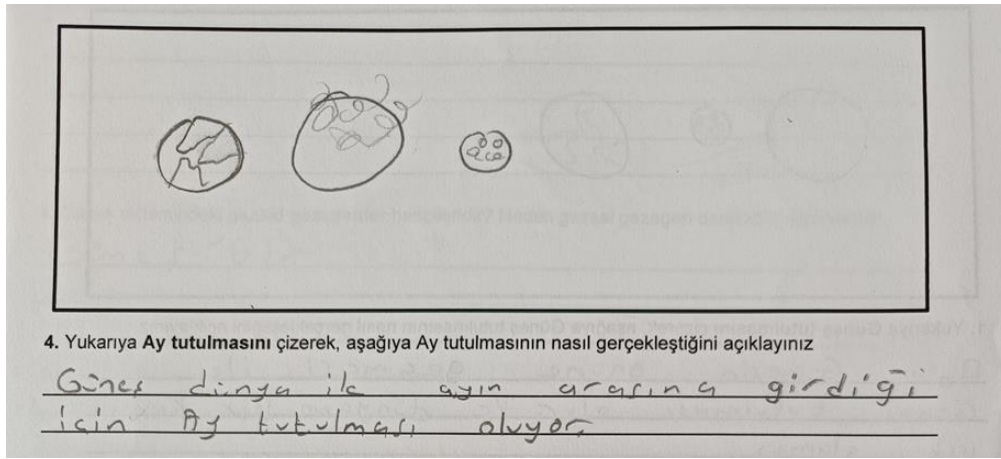 4. Yukarıya Ay tutulmasını çizerek, aşağıya Ay tutulmasının nasıl gerçekleştiğini açıklayınız
Güneş dünya ile ayın arasına girdiği
için Ay tutulması oluyor.